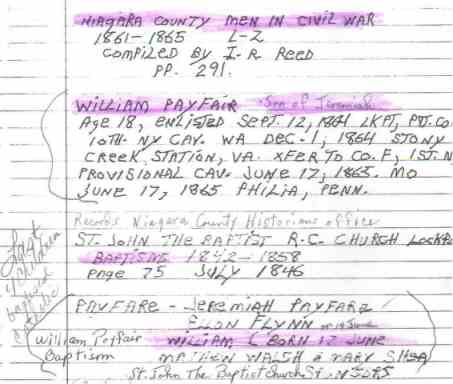 NIAGARA COUNTY MEN IN CIVIL WAR
1861-1865 L-Z
COMPILED BY I-R REED
PP. 291.
WILLIAM PAYFAIR Son of Jeremiah
Age 18, ENLISTED SEPT. 12, 1864 LKPT, PVT. CO
10TH. NY CAV. WA DEC. 1, 1864 STONY
CREEK STATION, VA. XFER TO CO. F, 1ST. N
PROVISIONAL CAV. JUNE 17, 1865. MO
JUNE 17, 1865 PHILIA, PENN.
Records Niagara County Historians office
ST. JOHN THE BAPTIST R-C. CHURCH LOCKP
BAPTISMS 1842-1858
PAGE 75 JULY 1846
Last
children
baptized
PAYFARE - JEREMIAH PAYFARE
FLYNN or 19 June
William Payfair WILLIAM, C BORN 17 JUNE
Baptism WALSH & MARY SHEA
St. John The Baptist Church St.